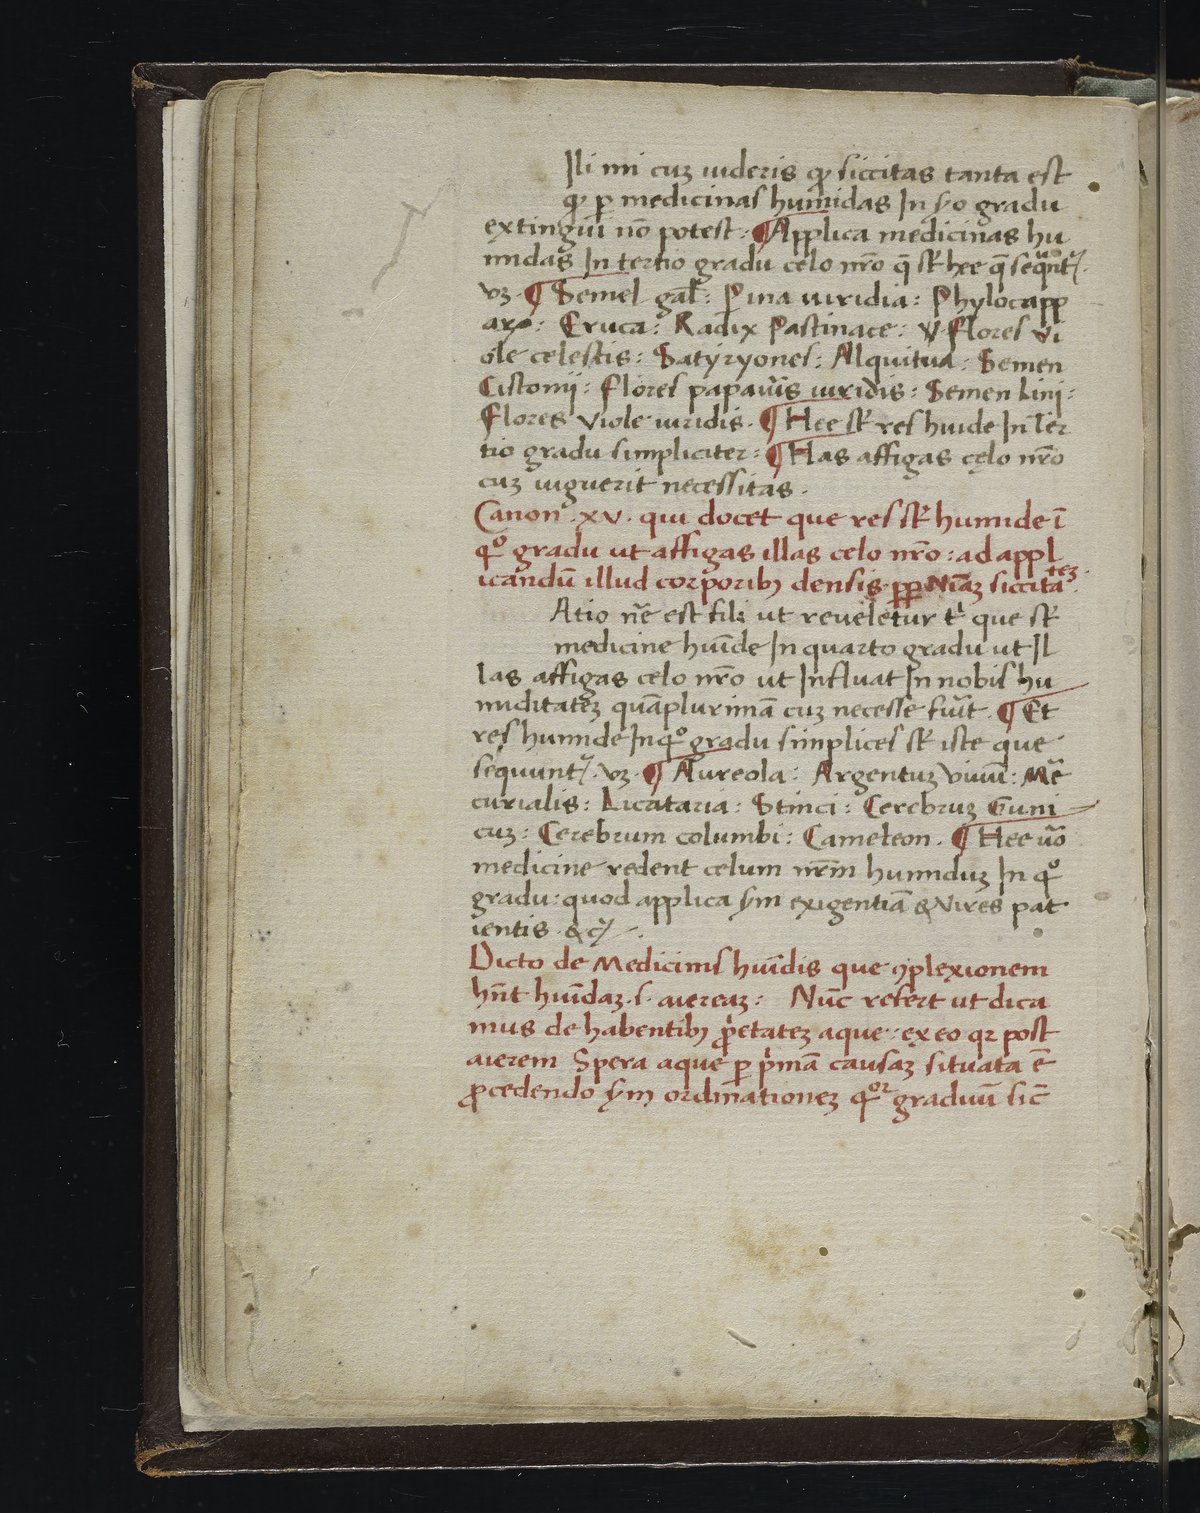 Ili mi cuʒ uideris ꝙ siccitas tanta est
ꝙ ꝑ medicinas humidas In s̄o gradu
extingui nō potest: ¶ Applica medicinas hu
midas In tertio gradu celo nr̄o q̄ sūt hee q̄ sequnt᷑
uʒ. ¶ Semel gal̄: Pina uiridia: Phylocapp
aro: Eruca: Radix Pastinace: Flores Vi
ole celestis: Satyryones: Alquitua: Semen
Cistomij: flores papaūis uiridis: Semen Lini:
Flores Viole uiridis. ¶ Hee sūt res huide In Ter
tio gradu simpliciter: ¶ Has affigas celo nr̄o
cuʒ uiguerit necessitas.
Canon. XV. qui docet que res sūt humide ī
qͦ gradu ut affigas illas celo nr̄o: ad appl
icandū illud corporibꝰ densis ꝓꝑ Nīaʒ siccitateʒ.
Atio nr̄e est fili ut reueletur tⁱ que sūt
medicine huīde In quarto gradu ut Il
las affigas celo nr̄o ut Influat In nobis hu
miditateʒ quāplurimā cuʒ necesse fuīt. ¶ Et
res humide In qͦ gradu simplices sūt iste que
sequunt᷑. uʒ. ¶ Aureola: Argentuʒ Viuū: Mē
curialis: Licataria: Stinci: Cerebruʒ Guni
cuʒ: Cerebrum columbi: Cameleon. ¶ Hee uō
medicine redent celum nr̄m humiduʒ In qͦ
gradu: quod applica s̄m exigentiā & Vires pat
ientis &c̄.
Dicto de Medicinis huīdis que ꝯplexionem
hn̄t huīdaʒ. s. aiereaʒ: Nūc refert ut dica
mus de habentibꝰ ꝓ̄etateʒ aque: ex eo qꝛ post
aierem Spera aque ꝑ pⁱmā causaʒ situata ē
ꝓcedendo s̄m ordinationeʒ qͦꝛ graduū sic̄